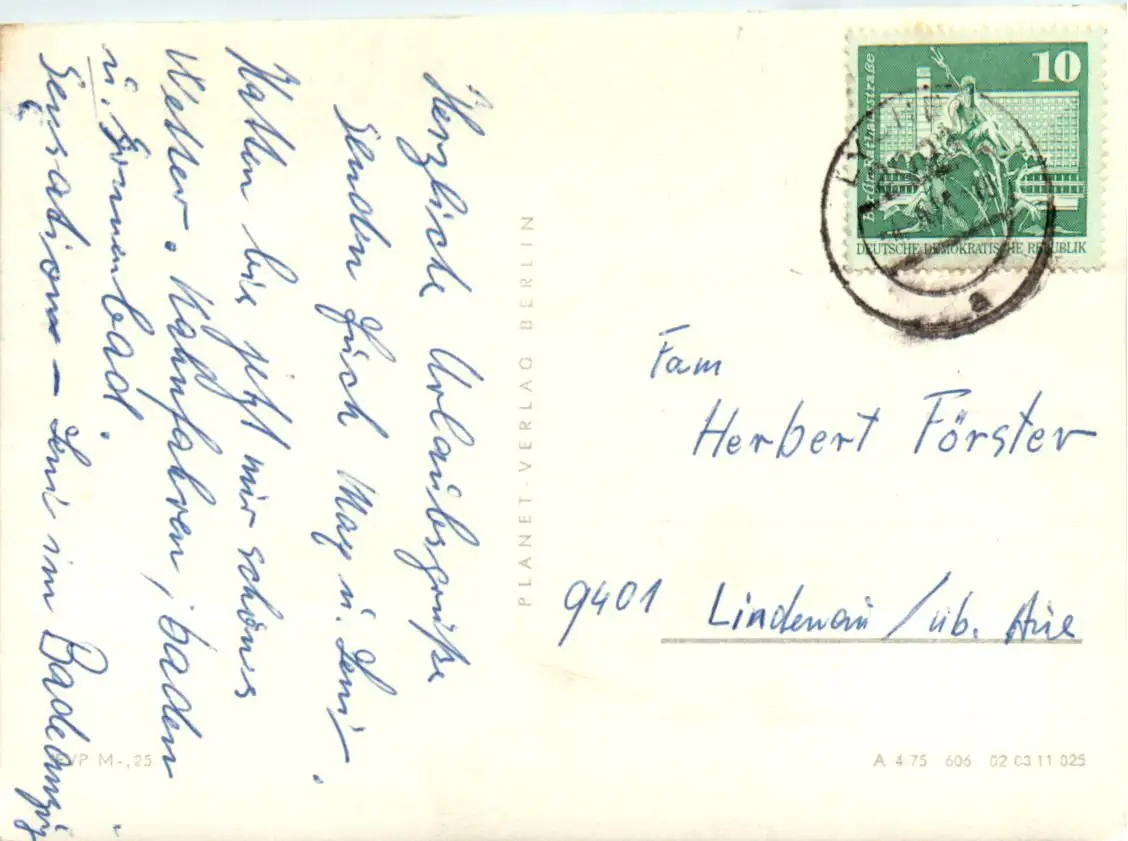 Herzliche Urlaubsgrüße
senden Euch May u. Leni.
Hatten bis jetzt nur schönes
Wetter. Kahnfahren, baden
u. Sonnenbad.
Sensation – Leni im Badeanzug
PLANET-VERLAG BERLIN
10
DEUTSCHE DEMOKRATISCHE REPUBLIK
LYCHEN
a
Fam
Herbert Förster
9401 Lindenau / üb. Aue
EVP M -,25
A 4 75 606 02 03 11 025